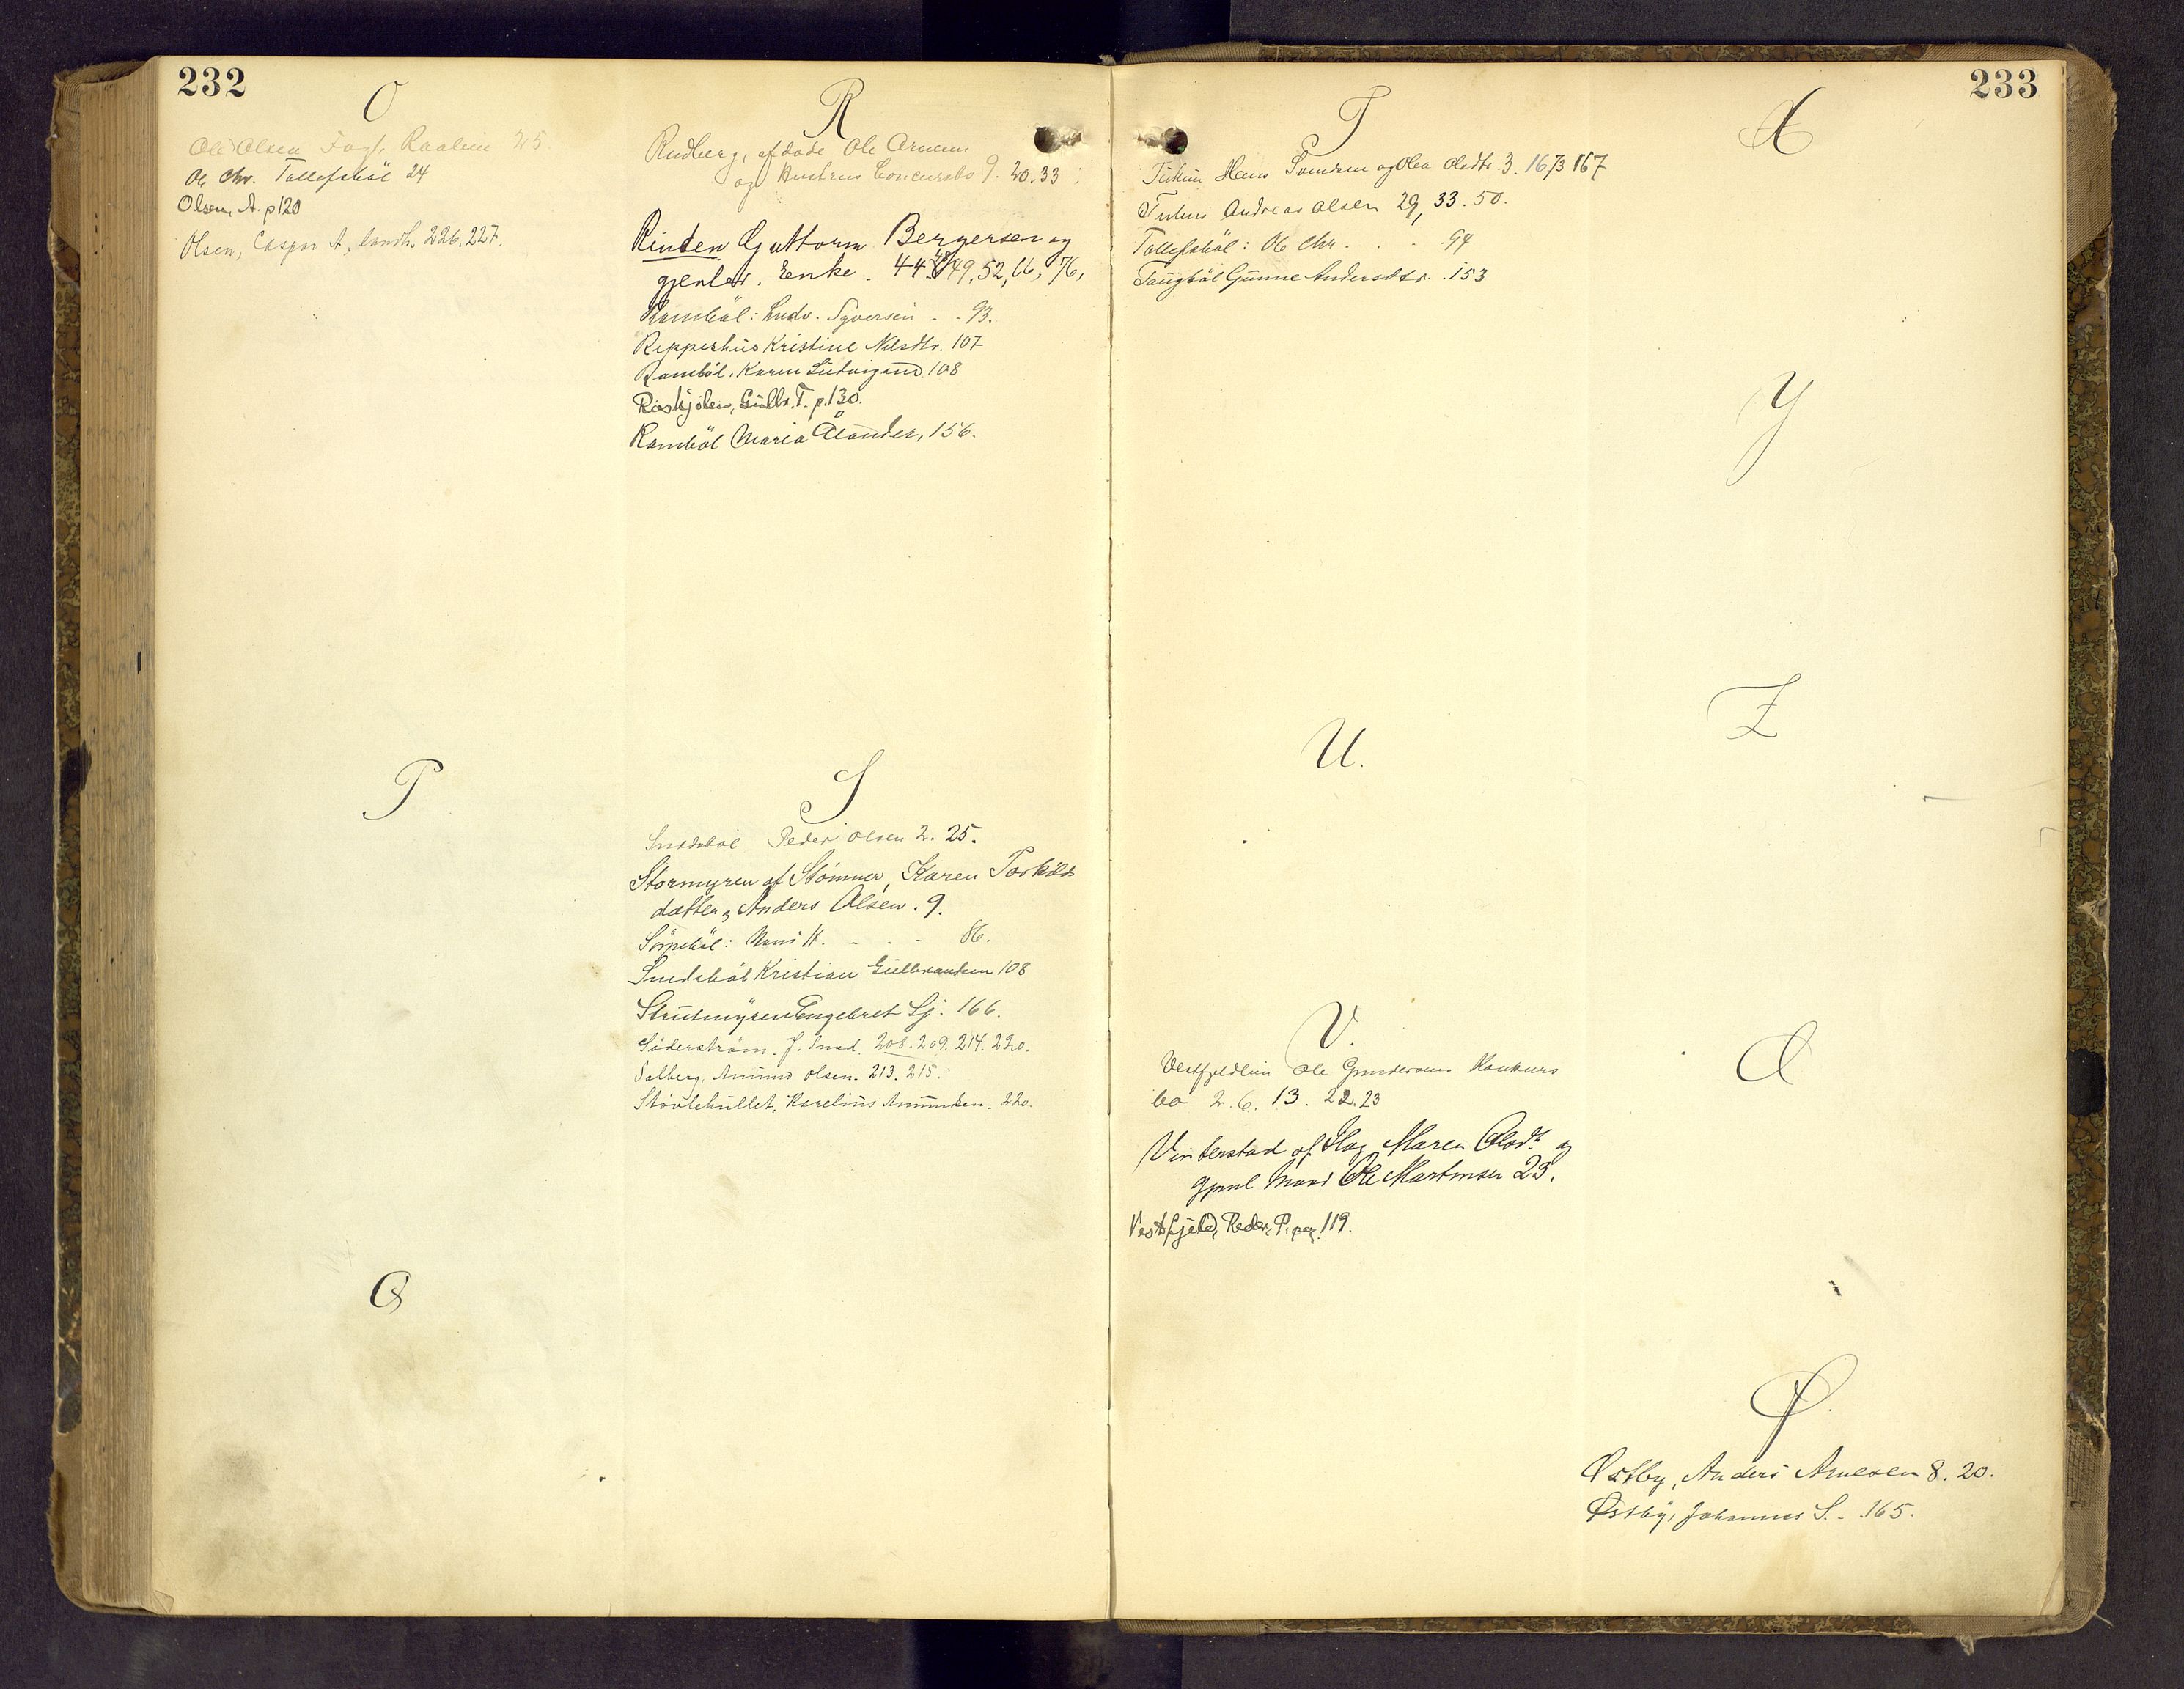 232
O
Ole Olsen Raalim 25.
Ole Chr. Tollefsböl 24
Olsen, A. p 120
Olsen, Caspar A. landh. 226. 227.
P
Q
R
Rudberg, afdöde Ole Arnesen
og Hustrus Concursbo 9. 20. 33
Rinden Guttorm Bergersen og
gjenlev. Enke. 44. 49, 52, 66, 76,
Ramböl: Ludv. Syversen - - 93.
Repperhus Kristine Nilsdtr. 107
Ramböl, Karen 108
Röskjölen, Gulbr. T. p. 130.
Ramböl Maria Ålander, 156.
S
Peder Olsen 2. 25.
Stormyren af Stömner, Karen Torkilds
datter & Anders Olsen. 9.
Hans K. - . - 86.
Kristian Gulbrandsen 108
Strutmyren Engebret Sj. 166.
Söderström. J. Smed. 208. 209. 214. 220.
Solberg, Amund Olsen. 213. 215.
Stövlehullet, Karelius Amundsen. 220.
233
T
Hans Svendsen og Olea Olsdtr. 3. 16/3 167
Andreas Olsen 29, 33. 50.
Tollefsböl: Ole Chr. . - . 94
Taugböl Gunne Andersdtr. . 153
U.
V.
Vestfjeldlien Ole Gundersens Konkurs
bo 2. 6. 13. 22. 23
Vinterstad af Hag Maren Olsdt. og
gjenl Mand Ole Martinsen 23.
Vestfjeld, Peder, P. pag. 119.
X
Y
Z
Ø.
Østby, Anders Arnesen 8. 20.
Østby, Johannes S. - . 165.